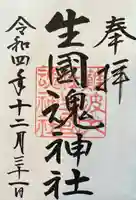 奉拝
生國魂神社
令和四年十二月三十一日